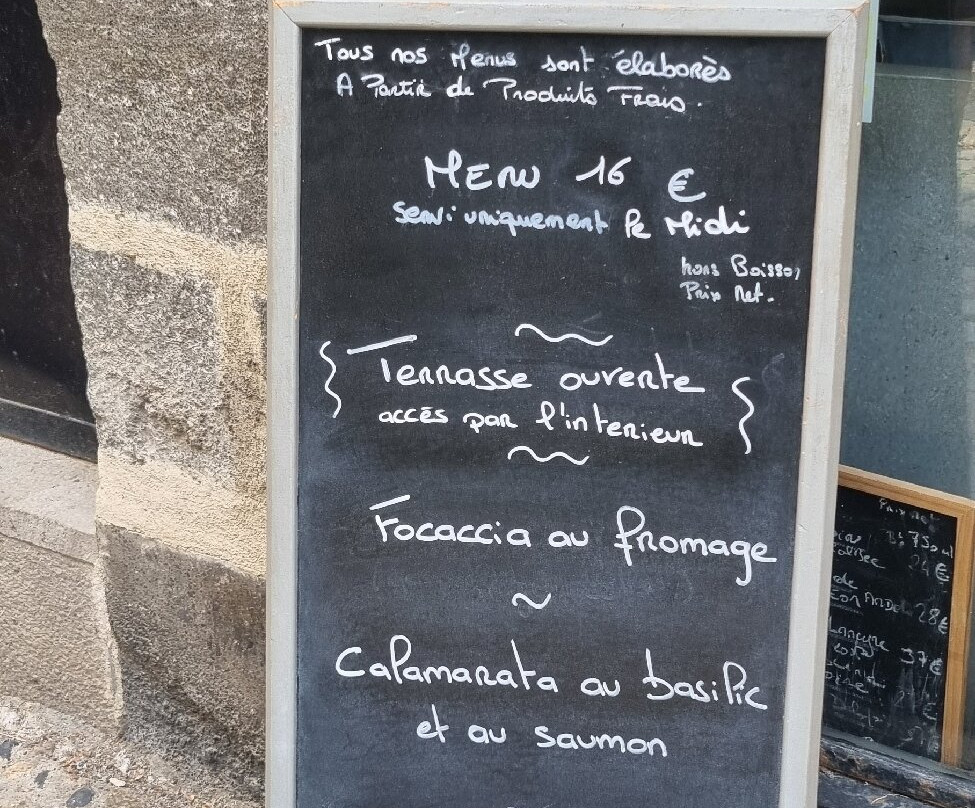 Tous nos Menus sont élaborès
A Partir de Produits Frais.
Menu 16 €
Servi uniquement le Midi
hors Boisson
Prix Net.
Terrasse ouverte
accès par l'interieur
~
Focaccia au fromage
~
Calamarata au basilic
et au saumon
Prix net
24€
28€
37€